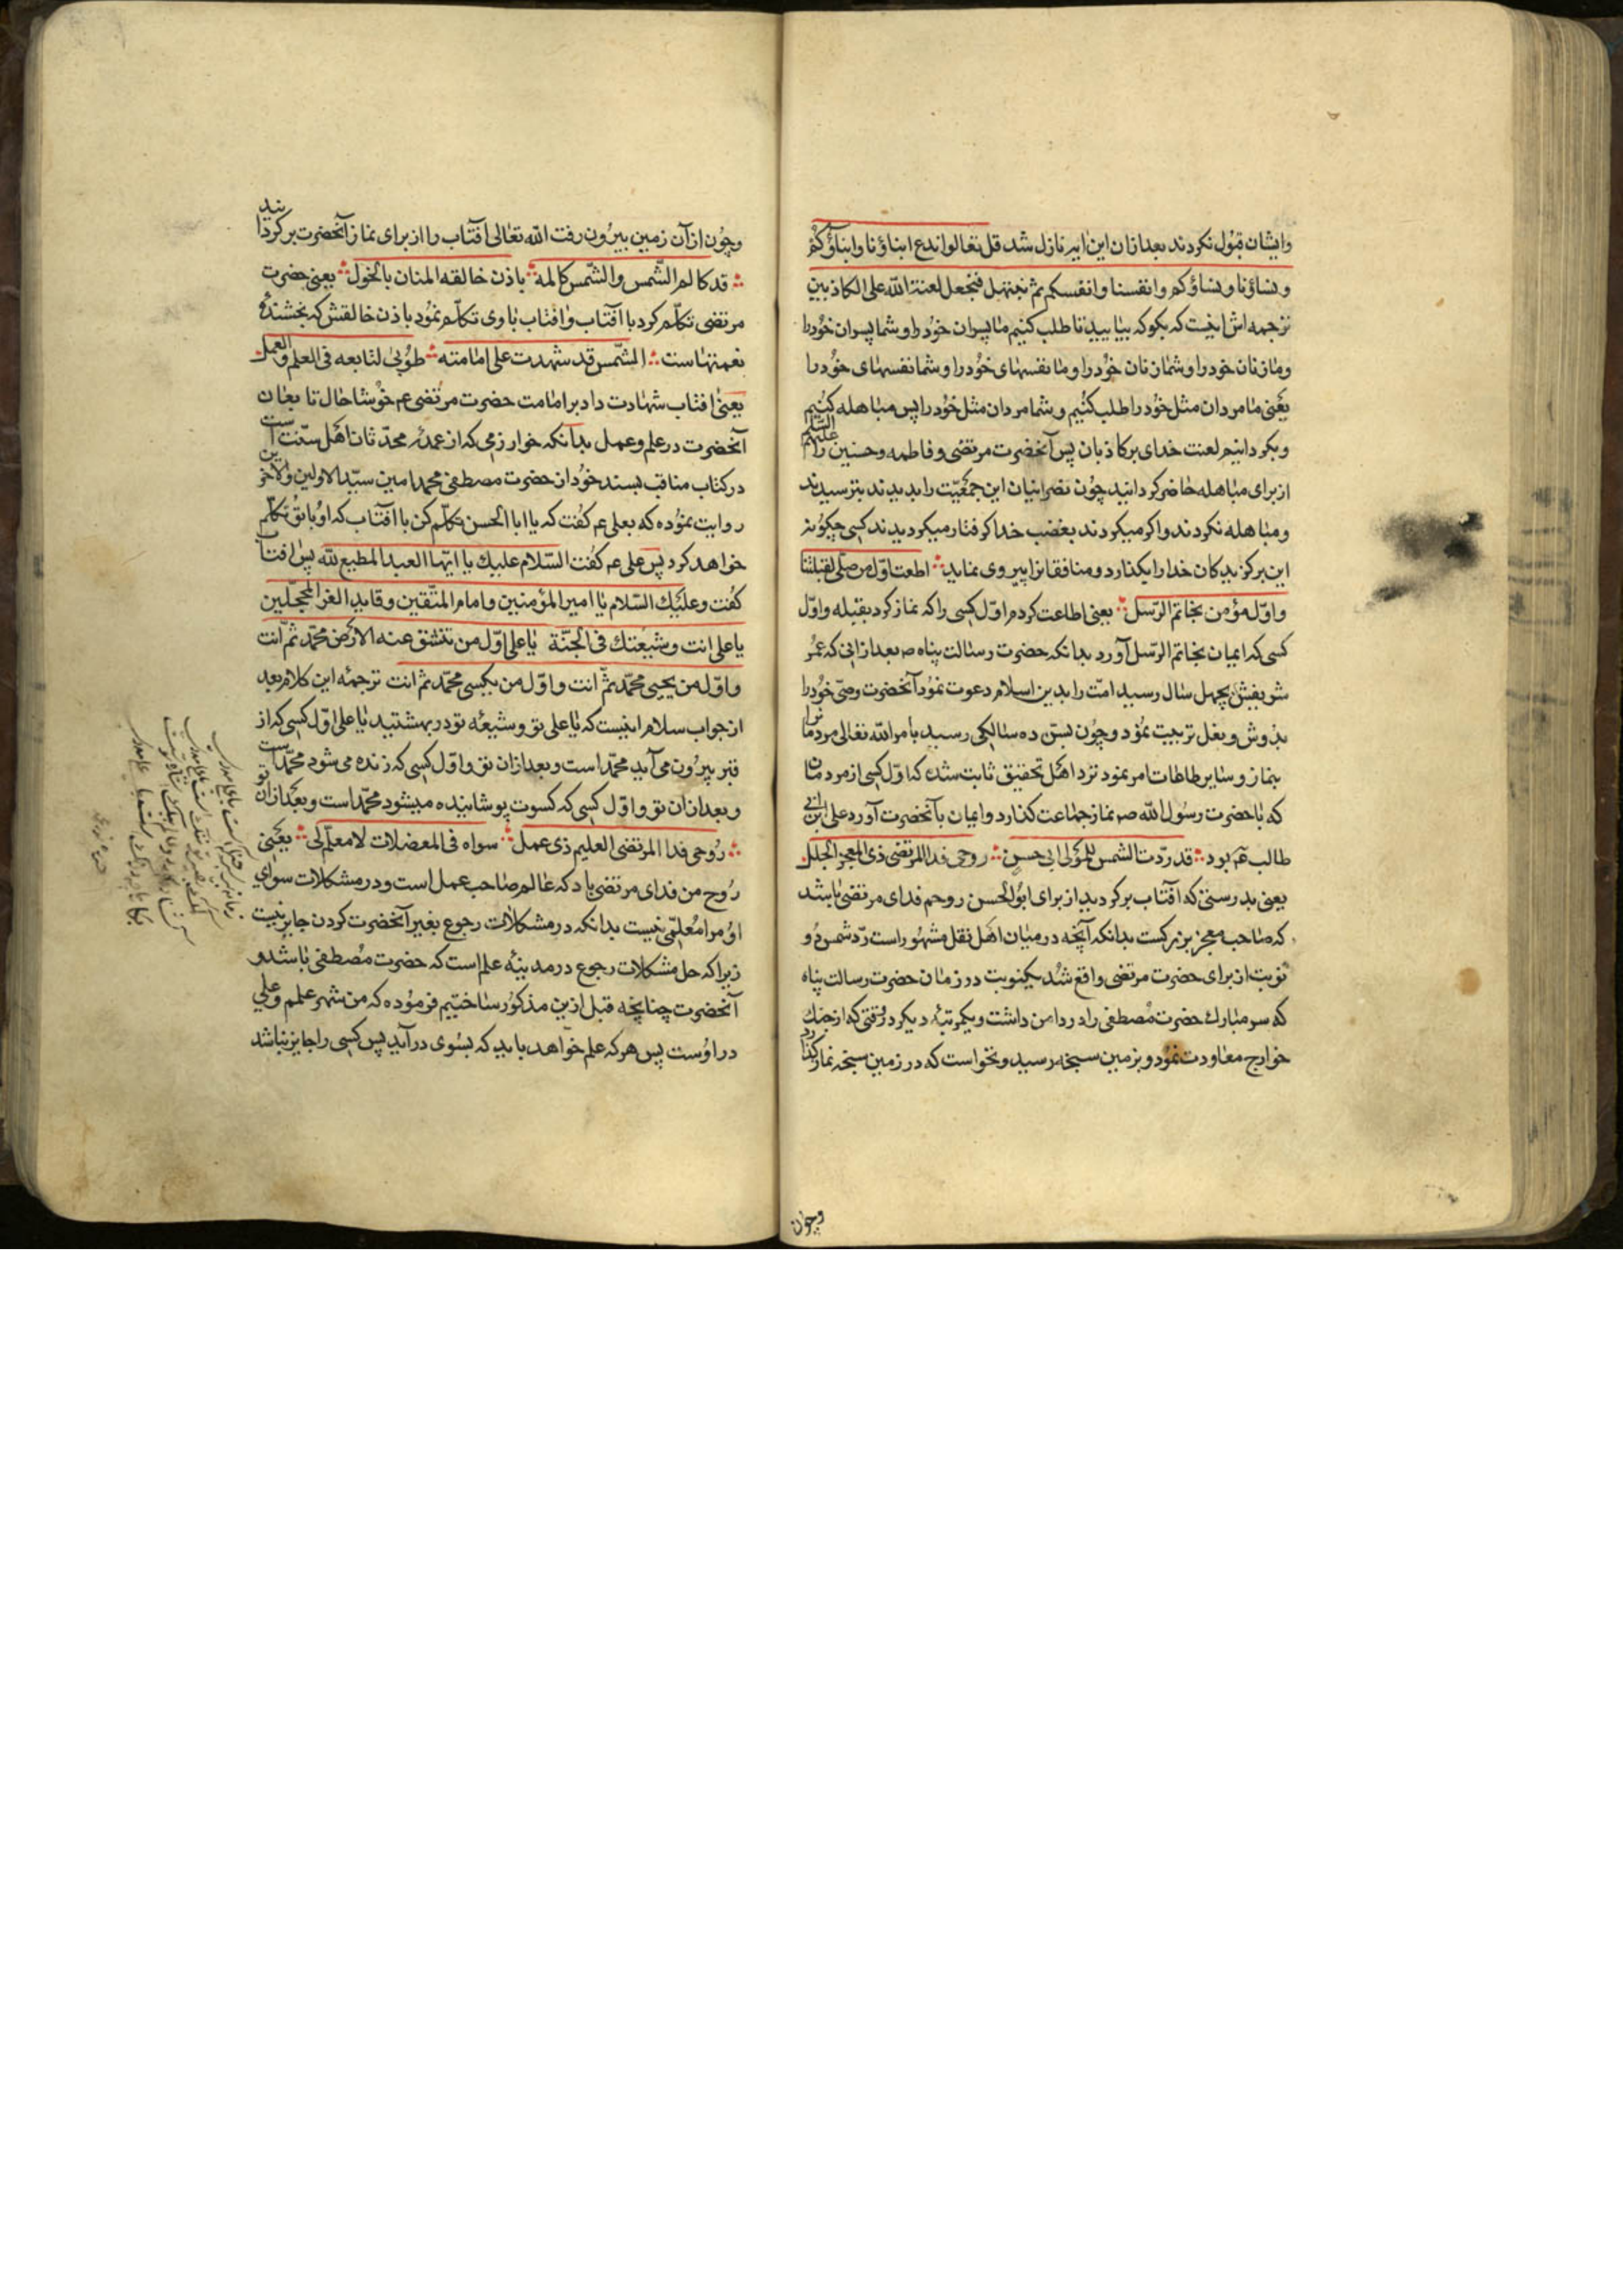 وایشان قبول نکردند بعد ازان این ایه نازل شد قل تعالوا ندع ابناؤنا وابناؤکم
و نساؤنا و نساؤکم وانفسنا وانفسکم ثم نبتهل فنجعل لعنة الله علی الکاذبین
ترجمه اش اینست که بکو که بیایید تا طلب کنیم ما پسران خود را و شما پسران خود را
و ما زنان خود را و شما زنان خود را و ما نفسهای خود را و شما نفسهای خود را
یعنی ما مردان مثل خود را طلب کنیم و شما مردان مثل خود را پس مباهله کنیم
و بکردانیم لعنت خدای بر کاذبان پس آنحضرت مرتضی و فاطمه و حسنین را علیهم السلم
از برای مباهله حاضر کردانید چون نصرانیان این جمعیت را بدیدند بترسیدند
و مباهله نکردند و اکر میکردند بغضب خدا کرفتار میکردیدند کسی چکونه
این برکزیدکان خدا را بکذارد و منافقانرا پیروی نماید اطعت اول من صلی لقبلتنا
و اول مؤمن بخاتم الرسل یعنی اطاعت کردم اول کسی را که نماز کرد بقبله و اول
کسی که ایمان بخاتم الرسل آورد بدانکه حضرت رسالت پناه صم بعد از انی که عمر
شریفش بچهل سال رسید امت را بدین اسلام دعوت نمود آنحضرت وصی خود را
بدوش و بغل تربیت نمود و چون بسن ده سالیکی رسید بامر الله تعالی مردمانرا
بنماز و سایر طاعات امر نمود نزد اهل تحقیق ثابت شده که اول کسی از مردمان
که با حضرت رسول الله صم نماز جماعت کذارد و ایمان بآنحضرت آورد علی بن ابی
طالب عم بود قد ردت الشمس للمولی ابی حسن روحی فدا المرتضی ذی المعجز الجلل
یعنی بدرستی که افتاب برکردید از برای ابوالحسن روحم فدای مرتضی باشد
که صاحب معجز بزرکست بدانکه آنچه در میان اهل نقل مشهور است رد شمس دو
نوبت از برای حضرت مرتضی واقع شد یکنوبت در زمان حضرت رسالت پناه
که سر مبارک حضرت مصطفی را در دامن داشت و یکمرتبه دیکر در وقتی که از جنک
خوارج معاودت نمود و بزمین سبخه رسید و نخواست که در زمین سبخه نماز کذارد
وچون
وچون از آن زمین بیرون رفت الله تعالی آفتاب را از برای نماز آنحضرت برکردانید
قد کالم الشمس والشمس کالمه باذن خالقه المنان بالخول یعنی حضرت
مرتضی تکلم کرد با آفتاب و افتاب با وی تکلم نمود باذن خالقش که بخشنده
نعمتهاست الشمس قد شهدت علی امامته طوبی لتابعه فی العلم والعمل
یعنی افتاب شهادت داد بر امامت حضرت مرتضی عم خوشا حال تابعان
آنحضرت در علم و عمل بدآنکه خوارزمی که از عمده محدثان اهل سنت است
در کتاب مناقب بسند خود از حضرت مصطفی محمد امین سید الاولین والاخرین
روایت نموده که بعلی عم کفت که یا ابا الحسن تکلم کن با آفتاب که او با تو تکلم
خواهد کرد پس علی عم کفت السلام علیک یا ایها العبد المطیع لله پس افتاب
کفت وعلیک السلام یا امیر المؤمنین وامام المتقین وقاید الغر المحجلین
یا علی انت وشیعتک فی الجنة یا علی اول من تنشق عنه الارض محمد ثم انت
واول من یحیی محمد ثم انت واول من یکسی محمد ثم انت ترجمه این کلام بعد
از جواب سلام اینست که یا علی تو و شیعه تو در بهشتید یا علی اول کسی که از
قبر بیرون می آید محمد است و بعد ازان تو و اول کسی که زنده می شود محمد است
و بعد ازان تو و اول کسی که کسوت پوشانیده میشود محمد است و بعد ازان تو
روحی فدا المرتضی العلیم ذی عمل سواه فی المعضلات لا معلم لی یعنی
روح من فدای مرتضی باد که عالم صاحب عمل است و در مشکلات سوای
او مرا معلمی نیست بدانکه در مشکلات رجوع بغیر آنحضرت کردن جایز نیست
زیرا که حل مشکلات رجوع در مدینه علم است که حضرت مصطفی باشد و
آنحضرت چنانچه قبل ازین مذکور ساختیم فرموده که من شهر علمم و علی
در اوست پس هر که علم خواهد باید که بسوی در آید پس کسی را جایز نباشد